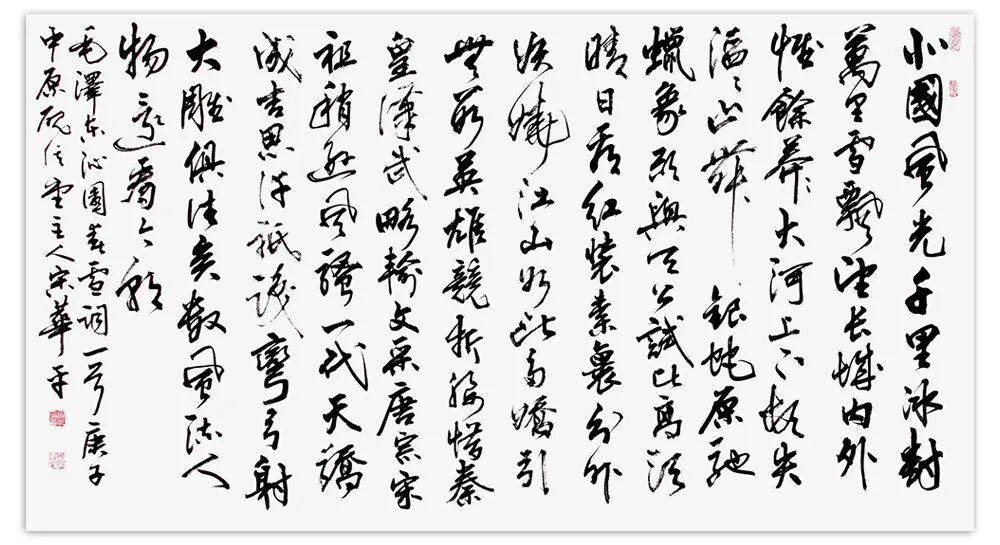 北國風光千里冰封
萬里雪飄望长城内外
惟餘莽々大河上下頓失
滔々山舞銀蛇原馳
蠟象欲與天公試比高須
晴日看紅裝素裹分外
妖嬈江山如此多嬌引
無數英雄競折腰惜秦
皇漢武略輸文采唐宗宋
祖稍遜風騷一代天驕
成吉思汗祇識彎弓射
大雕俱往矣數風流人
物還看今朝
毛澤东沁園春雪詞一首庚子
中原堂主人宋華平